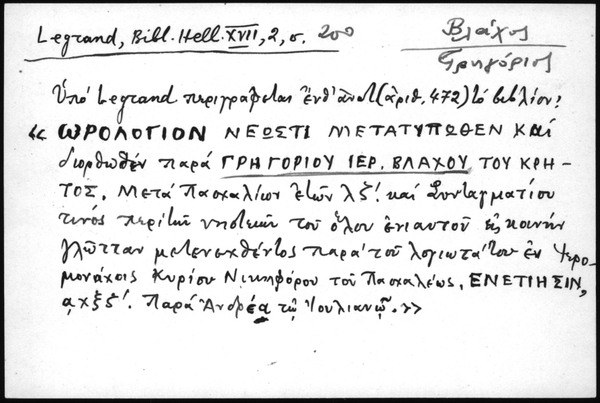 Legrand, Bibl. Hell. XVII, 2, σ. 200
Βλάχος
Γρηγόριος
Ὑπό Legrand περιγράφεται ἐνθ' ἀνωτ. (ἀριθ. 472) τό βιβλίον:
« ΩΡΟΛΟΓΙΟΝ ΝΕΩΣΤΙ ΜΕΤΑΤΥΠΩΘΕΝ ΚΑΙ
διορθωθέν παρά ΓΡΗΓΟΡΙΟΥ ΙΕΡ. ΒΛΑΧΟΥ ΤΟΥ ΚΡΗ-
ΤΟΣ. Μετά Πασχαλίων ἐτῶν λξ'. καί Συνταγματίου
τινός περί τῶν νηστειῶν τοῦ ὅλου ἐνιαυτοῦ εἰς κοινήν
γλῶτταν μετενεχθέντος παρά τοῦ λογιωτάτου ἐν Ἱερο-
μονάχοις Κυρίου Νικηφόρου τοῦ Πασχαλέως. ΕΝΕΤΙΗΣΙΝ,
αχξξ'. Παρά Ἀνδρέᾳ τῷ Ἰουλιανῷ. »